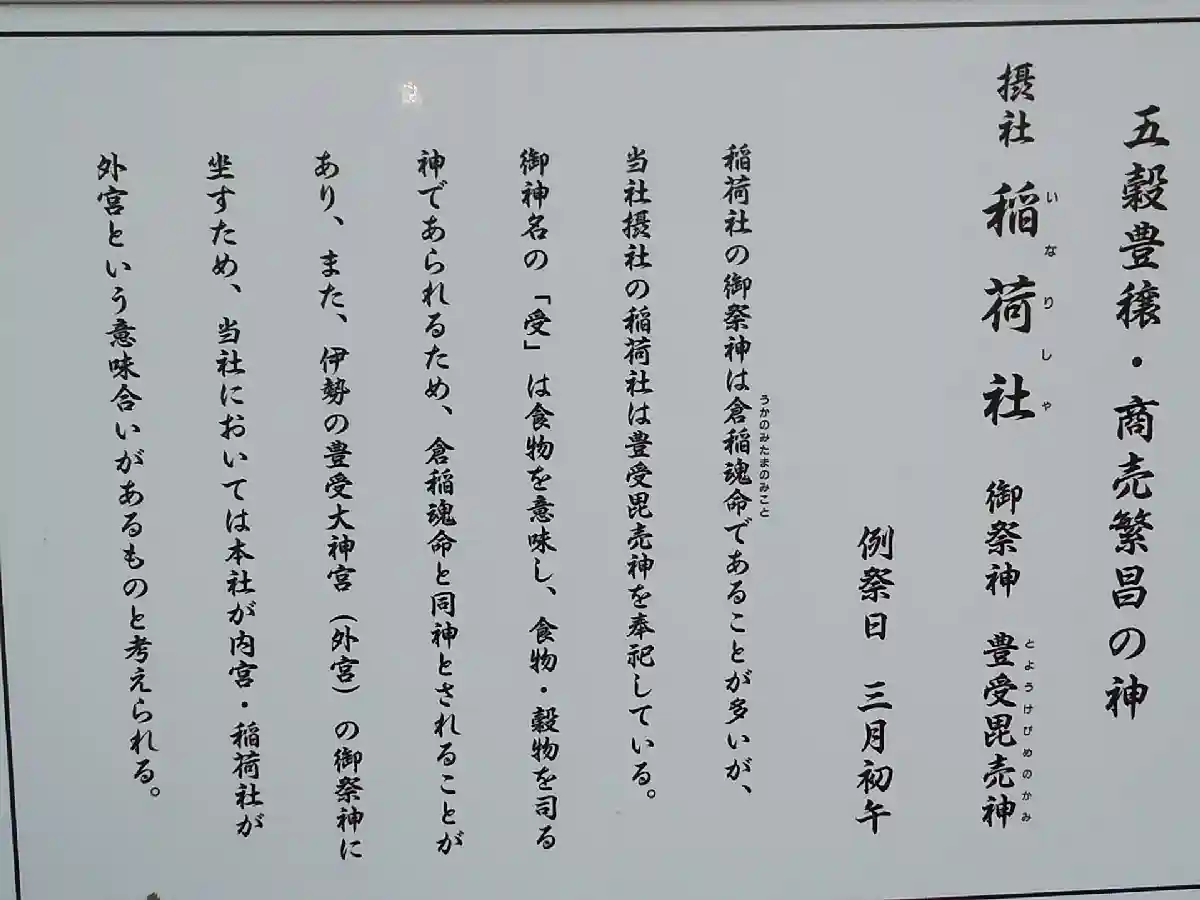 五穀豊穣・商売繁昌の神
摂社 稲荷社 御祭神 豊受毘売神
いなりしゃ
とようけびめのかみ
例祭日 三月初午
稲荷社の御祭神は倉稲魂命であることが多いが、
うかのみたまのみこと
当社摂社の稲荷社は豊受毘売神を奉祀している。
御神名の「受」は食物を意味し、食物・穀物を司る
神であられるため、倉稲魂命と同神とされることが
あり、また、伊勢の豊受大神宮(外宮)の御祭神に
坐すため、当社においては本社が内宮・稲荷社が
外宮という意味合いがあるものと考えられる。